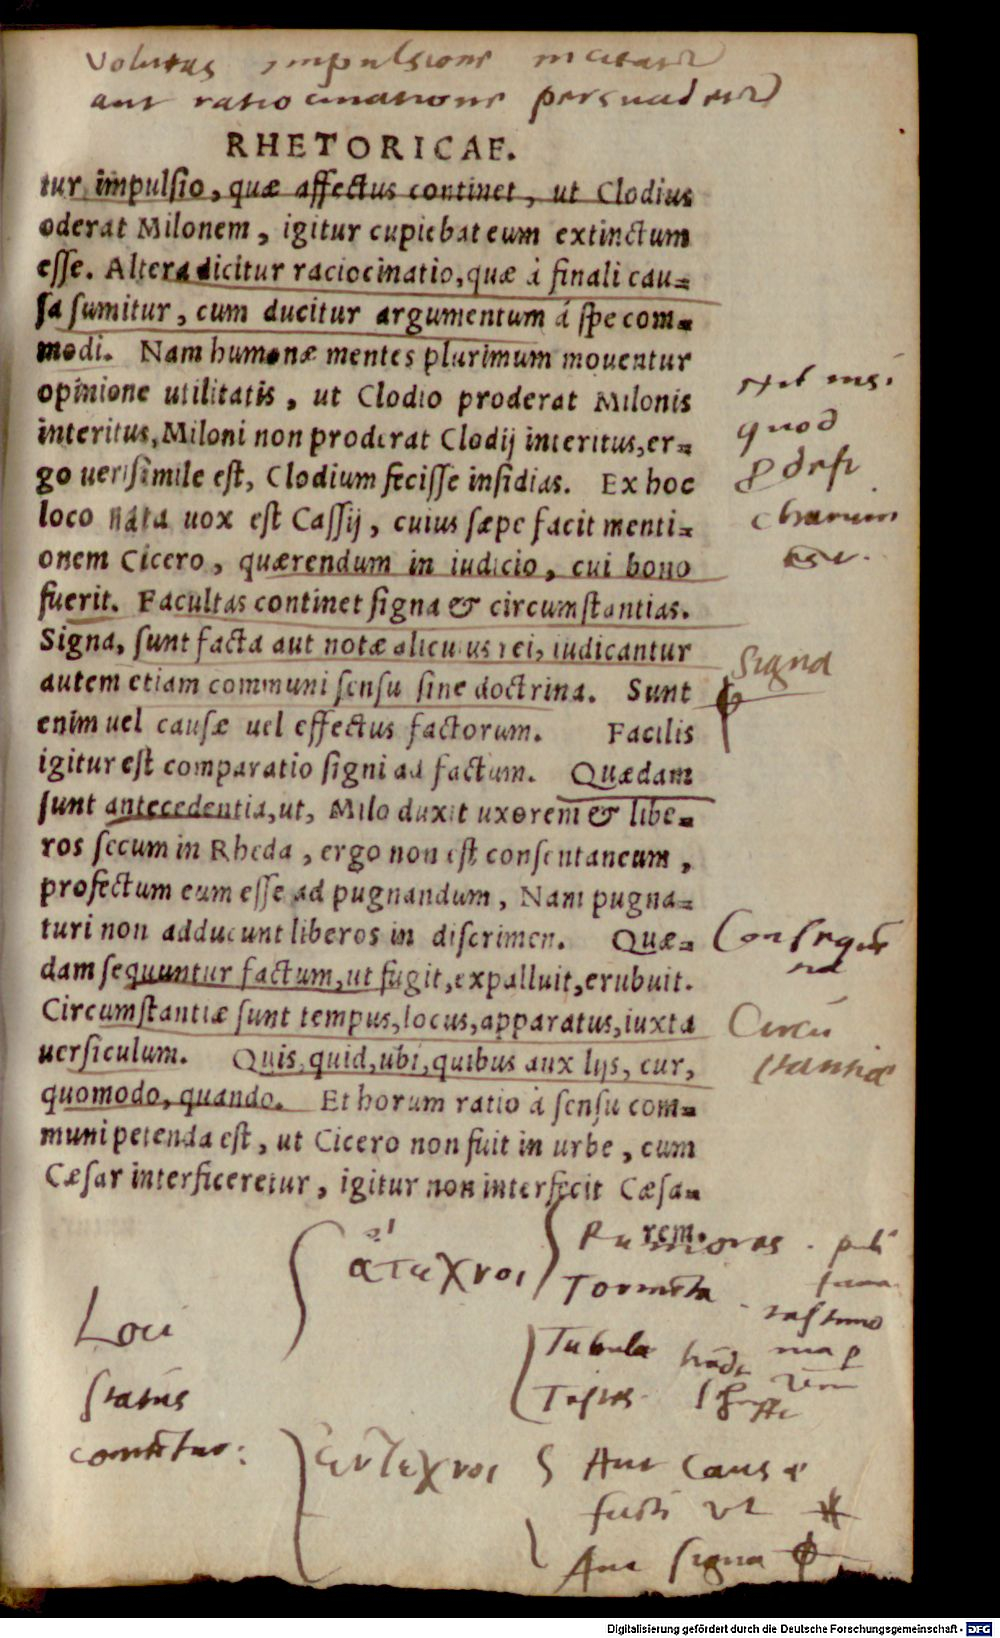 Voluntas impulsione incitatur
aut ratiocinatione persuadetur
RHETORICAE.
tur impulsio, quæ affectus continet, ut Clodius
oderat Milonem, igitur cupiebat eum extinctum
esse. Altera dicitur raciocinatio, quæ à finali cau=
sa sumitur, cum ducitur argumentum á spe com=
modi. Nam humanæ mentes plurimum mouentur
opinione utilitatis, ut Clodio proderat Milonis
interitus, Miloni non proderat Clodij interitus, er=
go uerisimile est, Clodium fecisse insidias. Ex hoc
loco nata uox est Cassij, cuius sæpe facit menti=
onem Cicero, quærendum in iudicio, cui bono
fuerit. Facultas continet signa & circumstantias.
Signa, sunt facta aut notæ alicuius rei, iudicantur
autem etiam communi sensu sine doctrina. Sunt
enim uel causæ uel effectus factorum. Facilis
igitur est comparatio signi ad factum. Quædam
sunt antecedentia, ut, Milo duxit uxorem & libe=
ros secum in Rheda, ergo non est consentaneum,
profectum eum esse ad pugnandum, Nam pugna=
turi non adducunt liberos in discrimen. Quæ=
dam sequuntur factum, ut fugit, expalluit, erubuit.
Circumstantiæ sunt tempus, locus, apparatus, iuxta
uersiculum. Quis, quid, ubi, quibus auxlijs, cur,
quomodo, quando. Et horum ratio à sensu com=
muni petenda est, ut Cicero non fuit in urbe, cum
Cæsar interficeretur, igitur non interfecit Cæsa=
rem.
quod
Signa
Consequen
tia
Circū
stantiæ
Loci
status
ἄτεχνοι
Rumores
Tormēta
Tabulæ
Testes
ἔντεχνοι
Aut causæ
facti ut
Aut signa
Digitalisierung gefördert durch die Deutsche Forschungsgemeinschaft - DFG